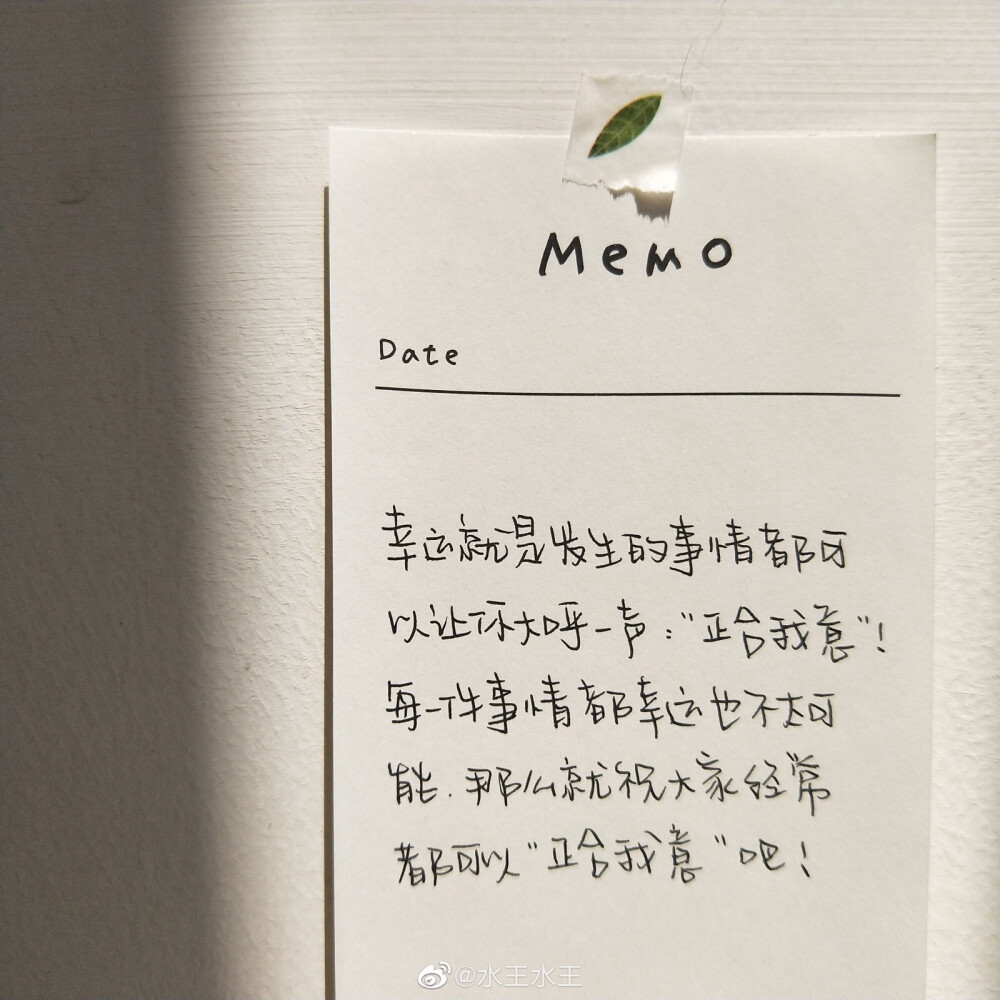 Memo
Date
幸运就是发生的事情都可
以让你大呼一声:“正合我意”!
每一件事情都幸运也不太可
能.那么就祝大家经常
都可以“正合我意”吧!
@水王水王